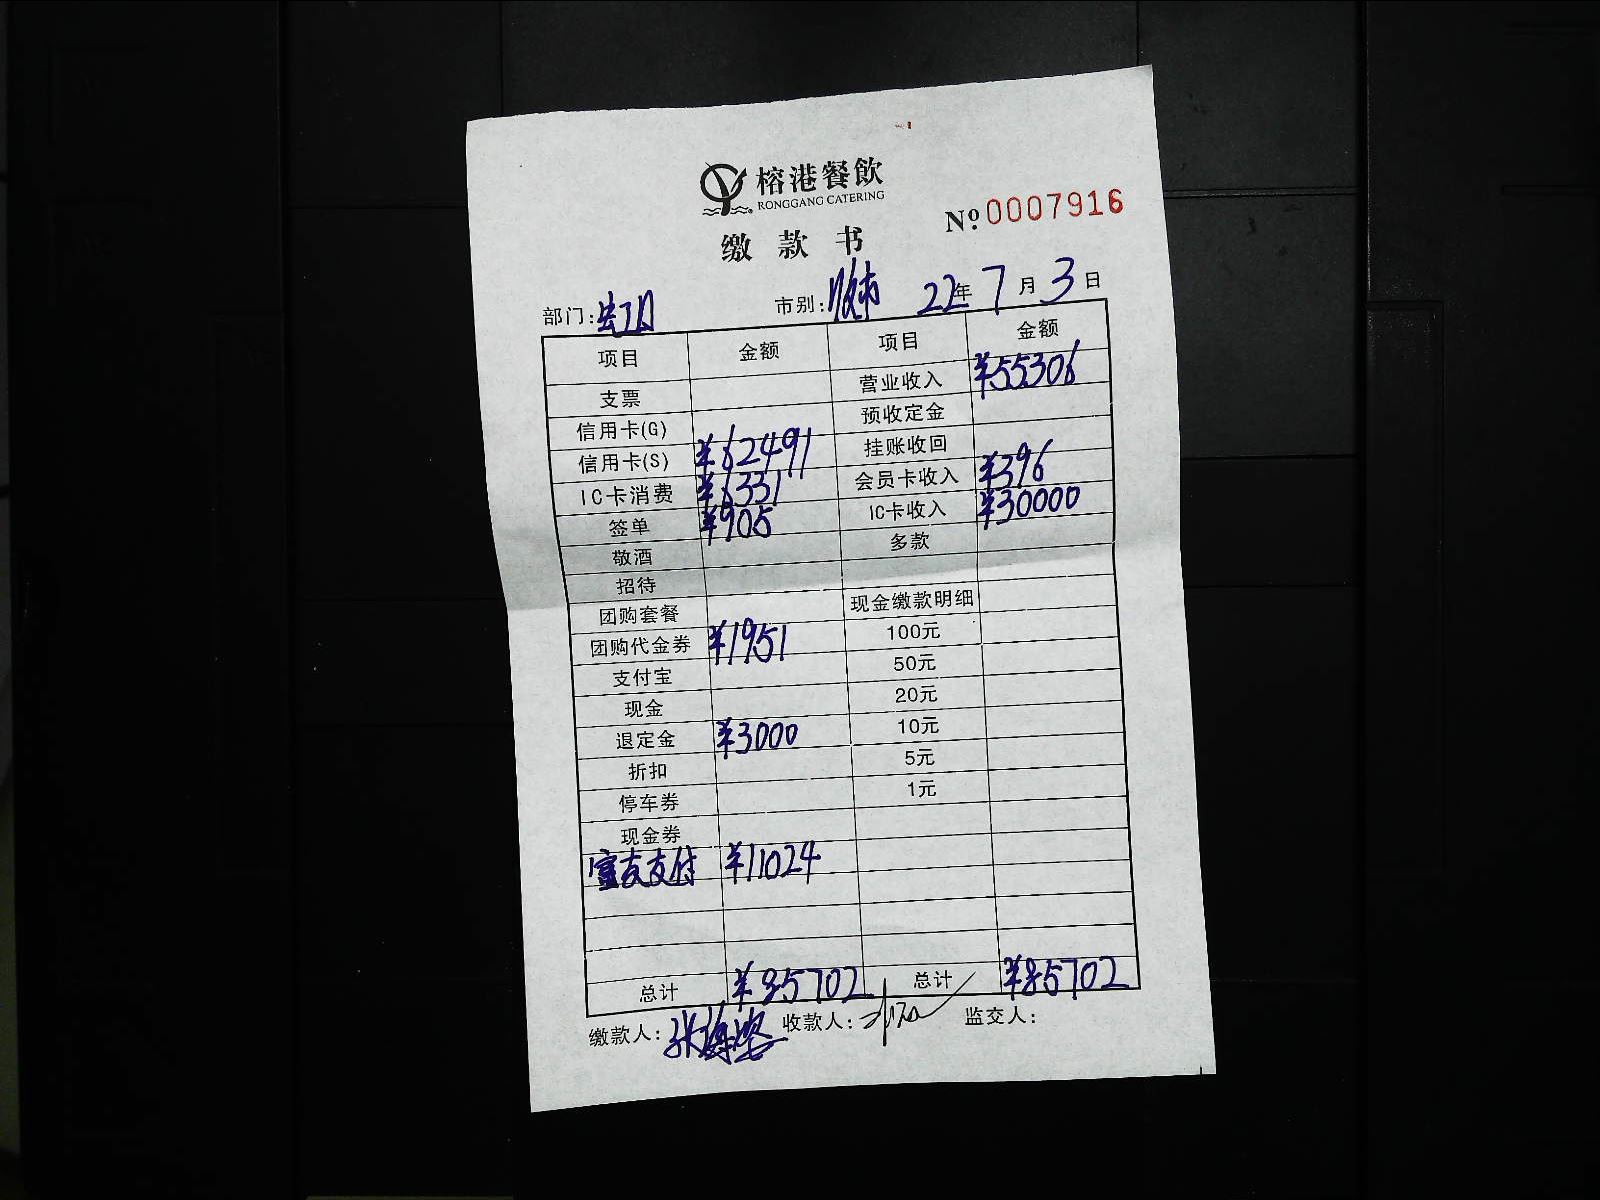 榕港餐飲
RONGGANG CATERING
№:0007916
缴款书
部门: 市别: 22年7月3日
项目 金额 项目 金额
支票 营业收入 ¥55306
信用卡(G) 预收定金
信用卡(S) ¥62491 挂账收回
IC卡消费 ¥6331 会员卡收入 ¥396
签单 ¥905 IC卡收入 ¥30000
敬酒 多款
招待
团购套餐 现金缴款明细
团购代金券 ¥1951 100元
支付宝 50元
现金 20元
退定金 ¥3000 10元
折扣 5元
停车券 1元
现金券
富友支付 ¥11024
总计 ¥85702 总计 ¥85702
缴款人: 收款人: 监交人: